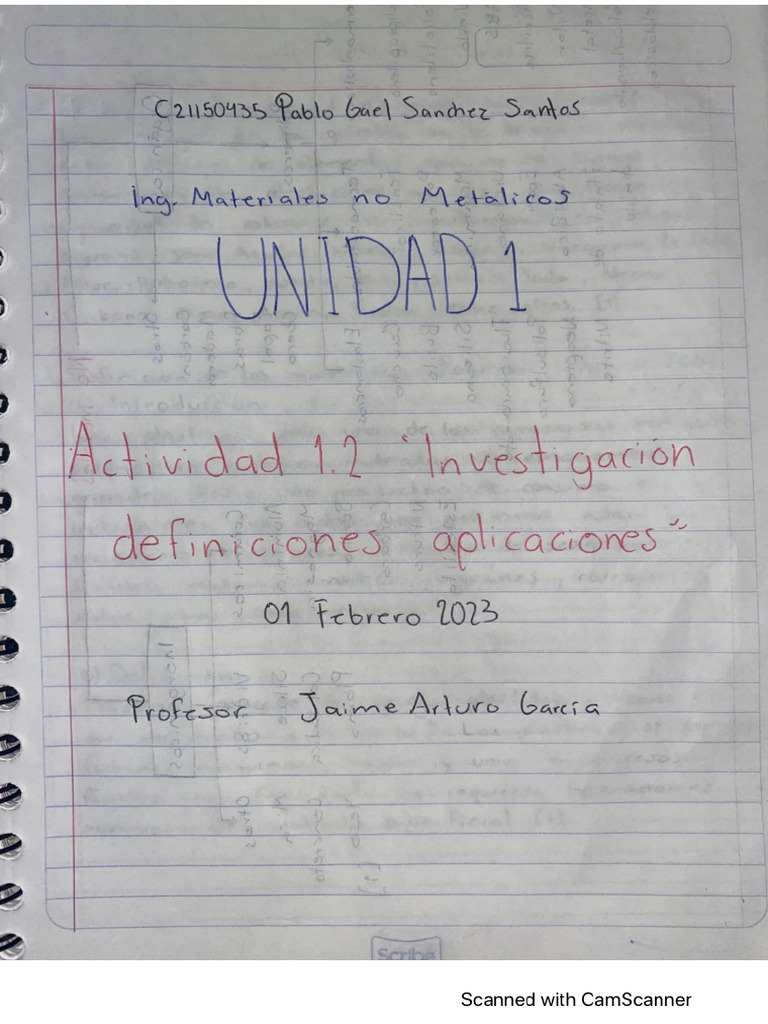 C21150435 Pablo Gael Sanchez Santos
ing. Materiales no Metálicos
UNIDAD 1
Actividad 1.2 "Investigación
definiciones aplicaciones"
01 Febrero 2023
Profesor Jaime Arturo García
Scribe
Scanned with CamScanner